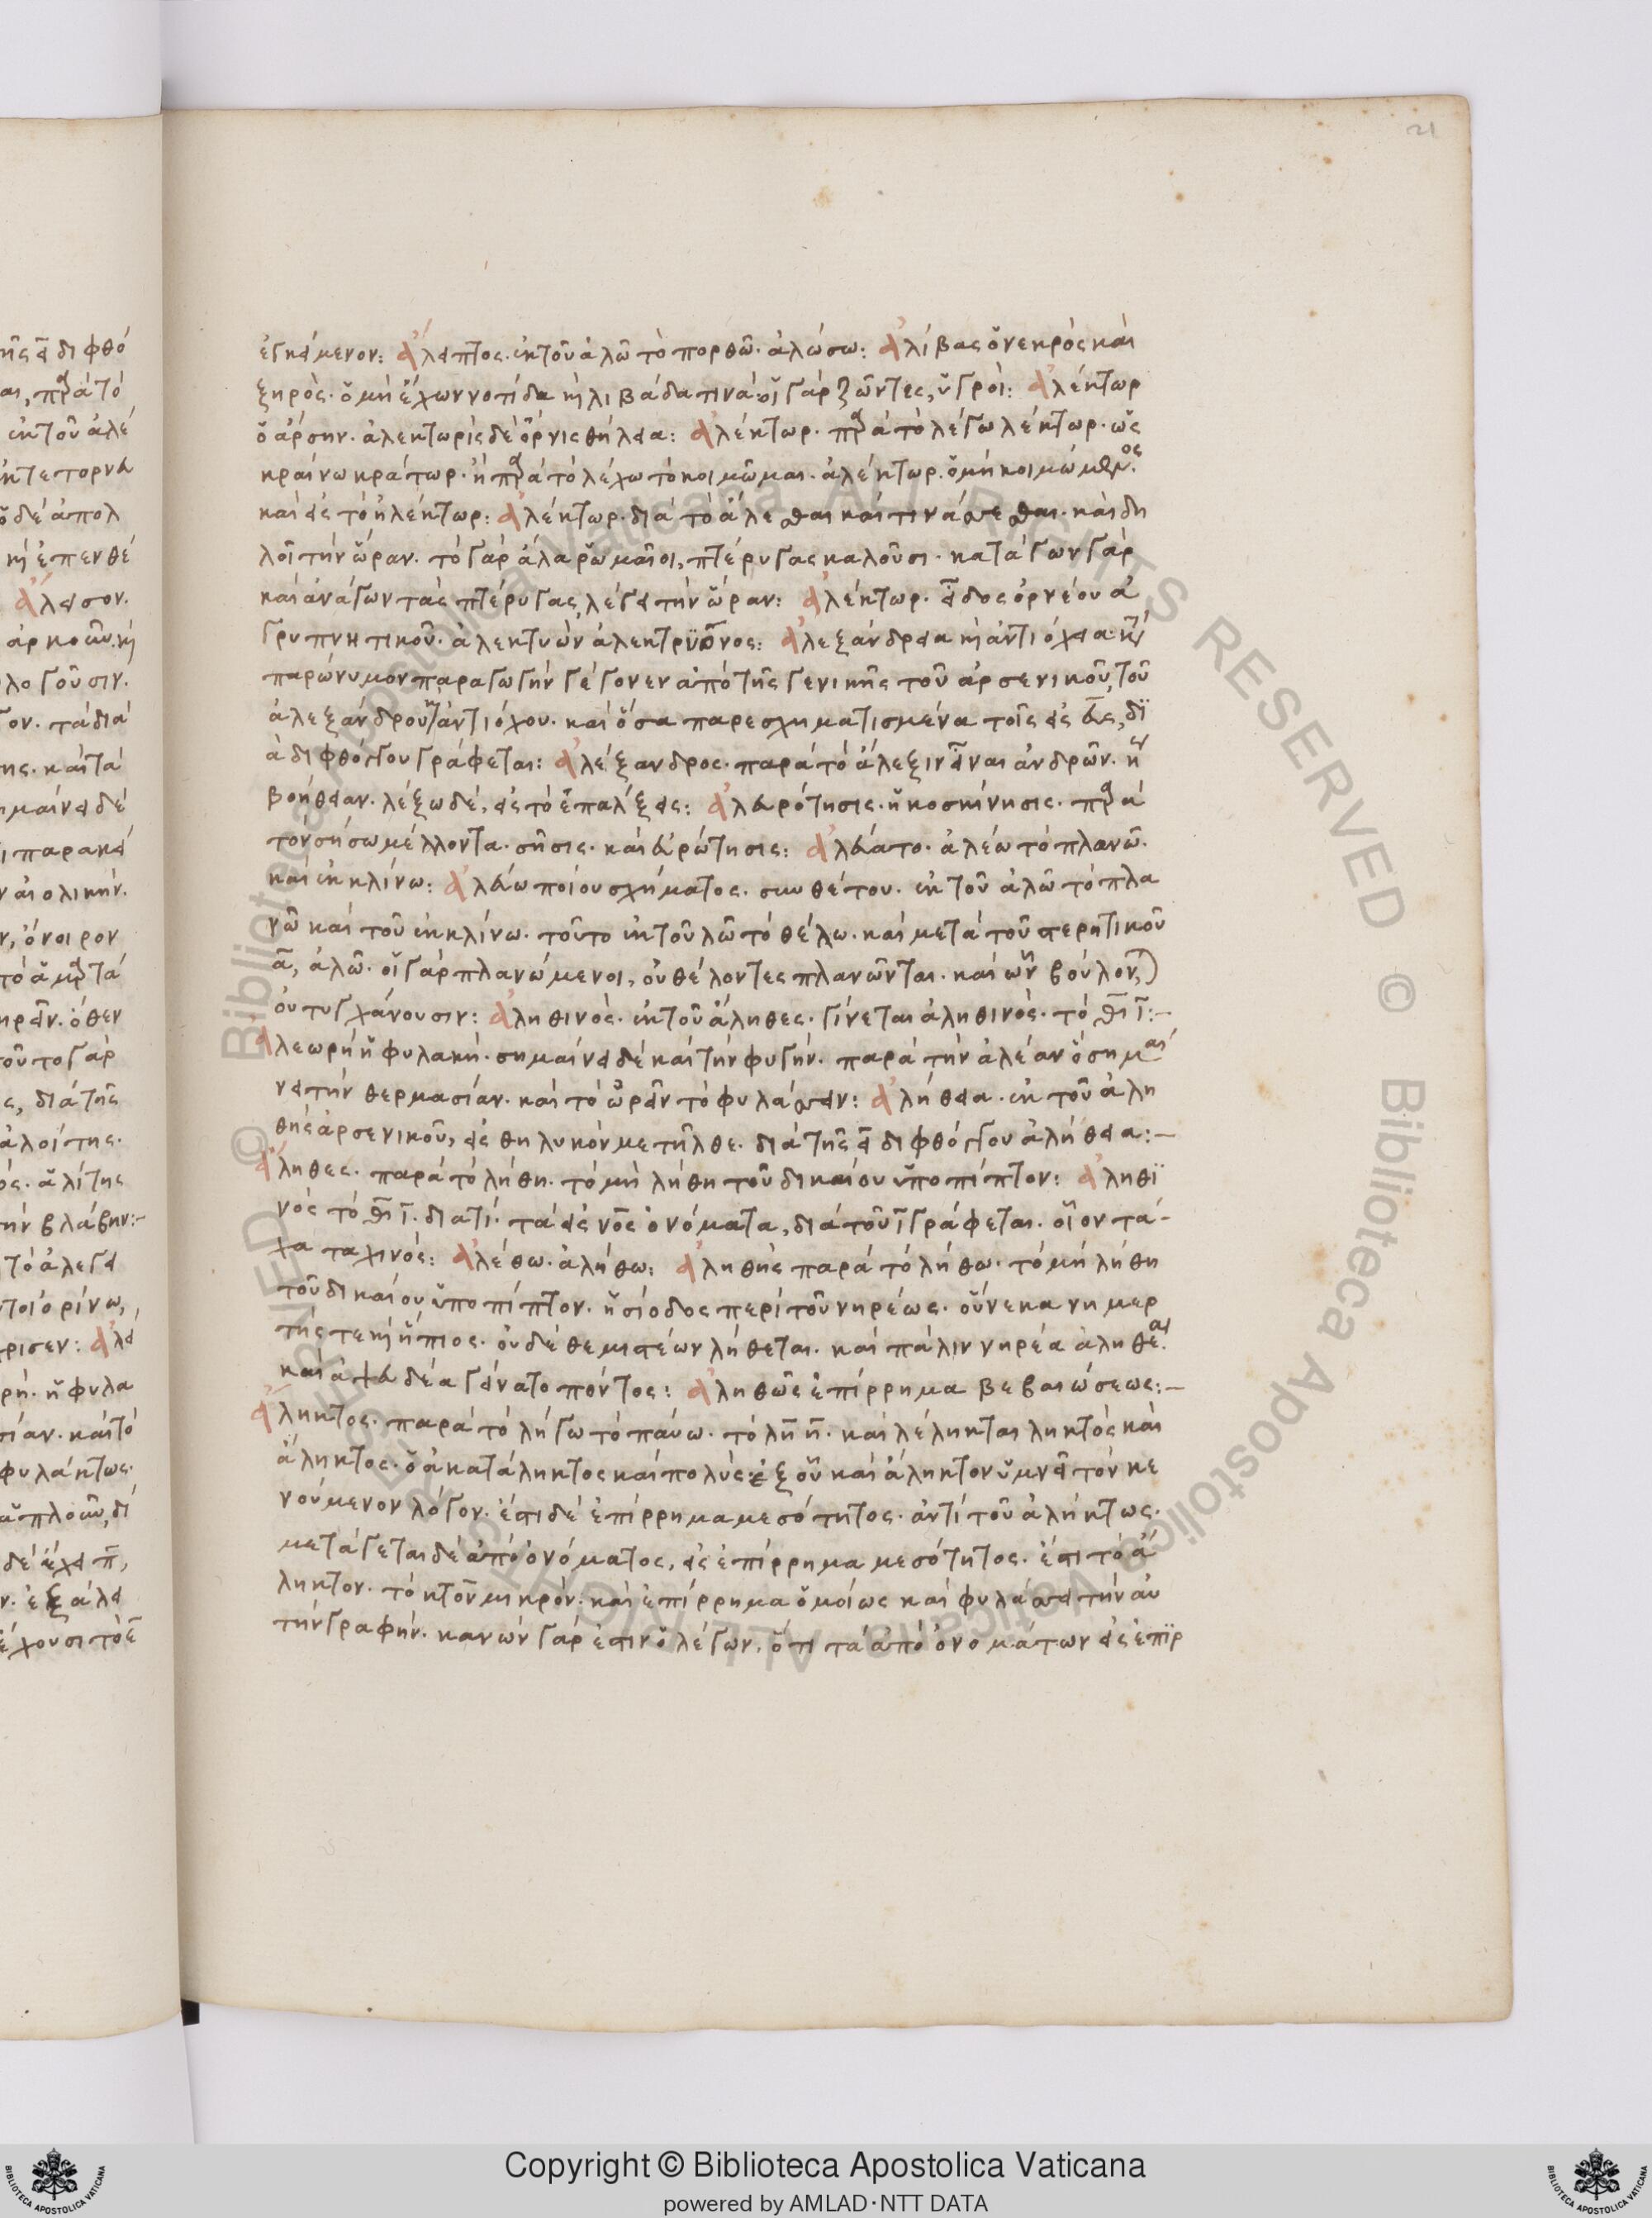 21
ἐγκείμενον: Ἄλειπτος· ἐκ τοῦ ἀλῶ τὸ πορθῶ· ἀλώσω: Ἀλίβας ὁ νεκρὸς καὶ
ξηρὸς· ὁ μὴ ἔχων νοτίδα ἢ λιβάδα τινά· οἱ γὰρ ζῶντες, ὑγροί: Ἀλέκτωρ
ὁ ἄρσην· ἀλεκτωρὶς δὲ ὄρνις θήλεια: Ἀλέκτωρ· παρὰ τὸ λέγω λέκτωρ· ὡς
κραίνω κράτωρ· ἢ παρὰ τὸ λέχω τὸ κοιμῶμαι· ἀλέκτωρ· ὁ μὴ κοιμώμενος·
καὶ εἰς τὸ ἠλέκτωρ: Ἀλέκτωρ· διὰ τὸ ἄλεσθαι καὶ τινάσσεσθαι· καὶ δη
λοῖ τὴν ὥραν· τὸ γὰρ ἄλα ῥωμαῖοι, πτέρυγας καλοῦσι· κατάγων γὰρ
καὶ ἀνάγων τὰς πτέρυγας, λέγει τὴν ὥραν: Ἀλέκτωρ· εἶδος ὀρνέου ἀ
γρυπνητικοῦ· ἀλεκτυὼν ἀλεκτρυόνος: Ἀλεξάνδρεια καὶ ἀντιόχεια
παρώνυμον παραγωγὴν γέγονεν ἀπὸ τῆς γενικῆς τοῦ ἀρσενικοῦ, τοῦ
ἀλεξάνδρου ἀντιόχου· καὶ ὅσα παρεσχηματισμένα τοῖς εἰς ευς, δι
ὰ διφθόγγου γράφεται: Ἀλέξανδρος· παρὰ τὸ ἄλεξιν εἶναι ἀνδρῶν· ἢ
βοήθειαν· λέξω δὲ, εἰς τὸ ἐπαλέξεις: Ἀλευρότησις· ἡ κοσκίνησις· παρὰ
τὸν σήσω μέλλοντα· σῆσις· καὶ εὐρώτησις: Ἀλεύατο· ἀλέω τὸ πλανῶ·
καὶ ἐκκλίνω: Ἀλεύω ποίου σχήματος· συνθέτου· ἐκ τοῦ ἀλῶ τὸ πλα
νῶ καὶ τοῦ ἐκκλίνω· τοῦτο ἐκ τοῦ λῶ τὸ θέλω· καὶ μετὰ τοῦ στερητικοῦ
α, ἀλῶ· οἱ γὰρ πλανώμενοι, οὐ θέλοντες πλανῶνται· καὶ ὧν βούλονται
οὐ τυγχάνουσιν: Ἀληθινὸς· ἐκ τοῦ ἄληθες· γίνεται ἀληθινὸς· τὸ θι ι:-
Ἀλεωρὴ ἡ φυλακὴ· σημαίνει δὲ καὶ τὴν φυγὴν· παρὰ τὴν ἀλέαν ὃ σημαί
νει τὴν θερμασίαν· καὶ τὸ ὠρεῖν τὸ φυλάσσειν: Ἀλήθεια· ἐκ τοῦ ἀλη
θὴς ἀρσενικοῦ, εἰς θηλυκὸν μετῆλθε· διὰ τῆς ει διφθόγγου ἀλήθεια:-
Ἄληθες· παρὰ τὸ λήθη· τὸ μὴ λήθη τοῦ δικαίου ὑποπίπτον: Ἀληθι
νὸς τὸ θι ι· διατί· τὰ εἰς νος ὀνόματα, διὰ τοῦ ι γράφεται· οἷον τά-
χα ταχινὸς: Ἀλέθω· ἀλήθω: Ἀληθὴς παρὰ τὸ λήθω· τὸ μὴ λήθη
τοῦ δικαίου ὑποπίπτον· ἡσίοδος περὶ τοῦ νηρέως· οὕνεκα νημερ
τής τε καὶ ἤπιος· οὐδὲ θεμιστέων λήθεται· καὶ πάλιν νηρέα ἀληθέα·
καὶ ἀψευδέα γείνατο πόντος: Ἀληθῶς ἐπίρρημα βεβαιώσεως:-
Ἄληκτος· παρὰ τὸ λήγω τὸ παύω· τὸ λη η· καὶ λέληκται ληκτὸς καὶ
ἄληκτος· ὁ ἀκατάληκτος καὶ πολύς· ἐξ οὗ καὶ ἄληκτον ὑμνεῖ τὸν κε
νούμενον λόγον· ἔστι δὲ ἐπίρρημα μεσότητος· ἀντὶ τοῦ ἀλήκτως·
μετάγεται δὲ ἀπὸ ὀνόματος, εἰς ἐπίρρημα μεσότητος· ἔστι τὸ ἄ
ληκτον· τὸ κτον μικρόν: καὶ ἐπίρρημα ὁμοίως καὶ φυλάσσει τὴν αὐ
τὴν γραφήν· κανὼν γάρ ἐστιν ὁ λέγων, ὅτι τὰ ἀπὸ ὀνομάτων εἰς ἐπιρ
Copyright © Biblioteca Apostolica Vaticana
powered by AMLAD·NTT DATA